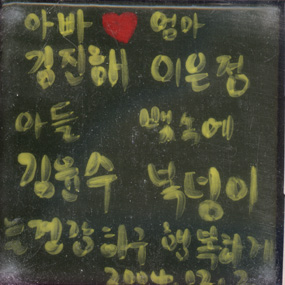 아빠 ♥ 엄마
김진해 이은정
아들 뱃속에
김윤수 복덩이
늘 건강하구 행복하게